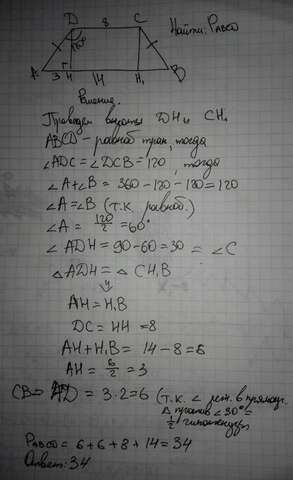 D 8 C Найти: Pавсд
120°
A 3 H 14 H₁ B
Решение.
Проведем высоты DH и CH₁
ABCD – равноб трап, тогда
∠ADC = ∠DCB = 120, тогда
∠A + ∠B = 360 - 120 - 120 = 120
∠A = ∠B (т.к. равноб.)
∠A = 120/2 = 60°
∠ADH = 90 - 60 = 30 = ∠C
△ADH = △CH₁B
AH = H₁B
DC = HH = 8
AH + H₁B = 14 - 8 = 6
AH = 6/2 = 3
CB = AD = 3·2 = 6 (т.к. ∠ леж. в прямоуг.
△ против ∠30° =
1/2 гипотенузы
Pавсд = 6 + 6 + 8 + 14 = 34
Ответ: 34